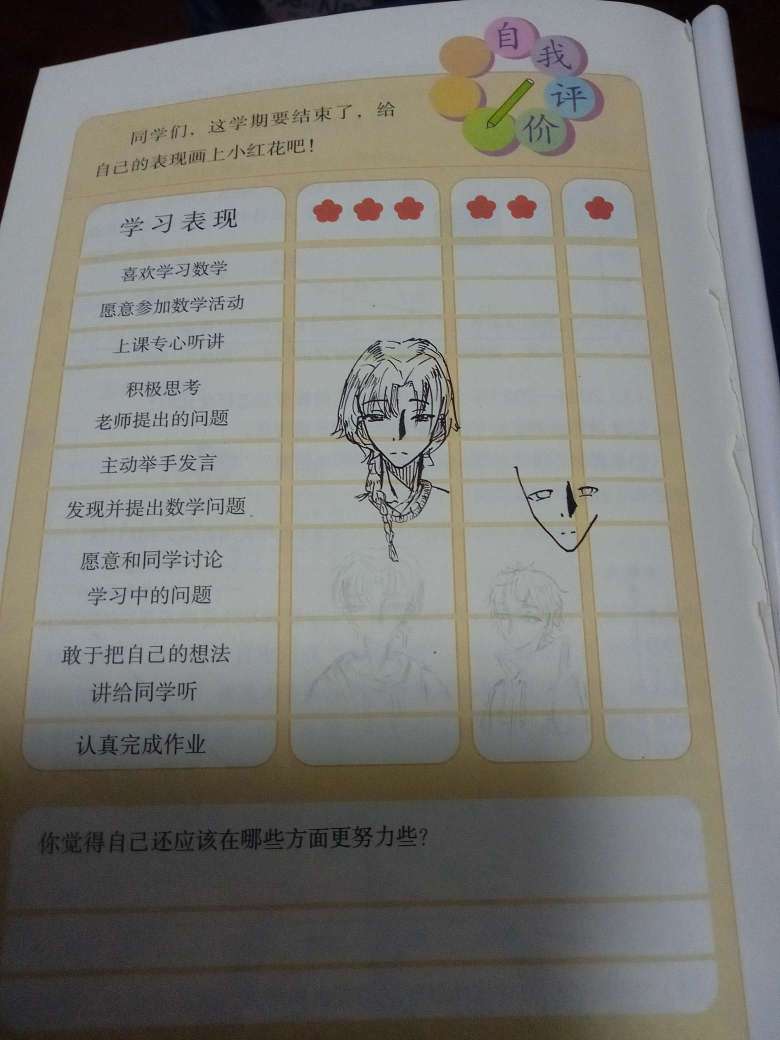 自我评价
同学们，这学期要结束了，给
自己的表现画上小红花吧！
学习表现
喜欢学习数学
愿意参加数学活动
上课专心听讲
积极思考
老师提出的问题
主动举手发言
发现并提出数学问题
愿意和同学讨论
学习中的问题
敢于把自己的想法
讲给同学听
认真完成作业
你觉得自己还应该在哪些方面更努力些？